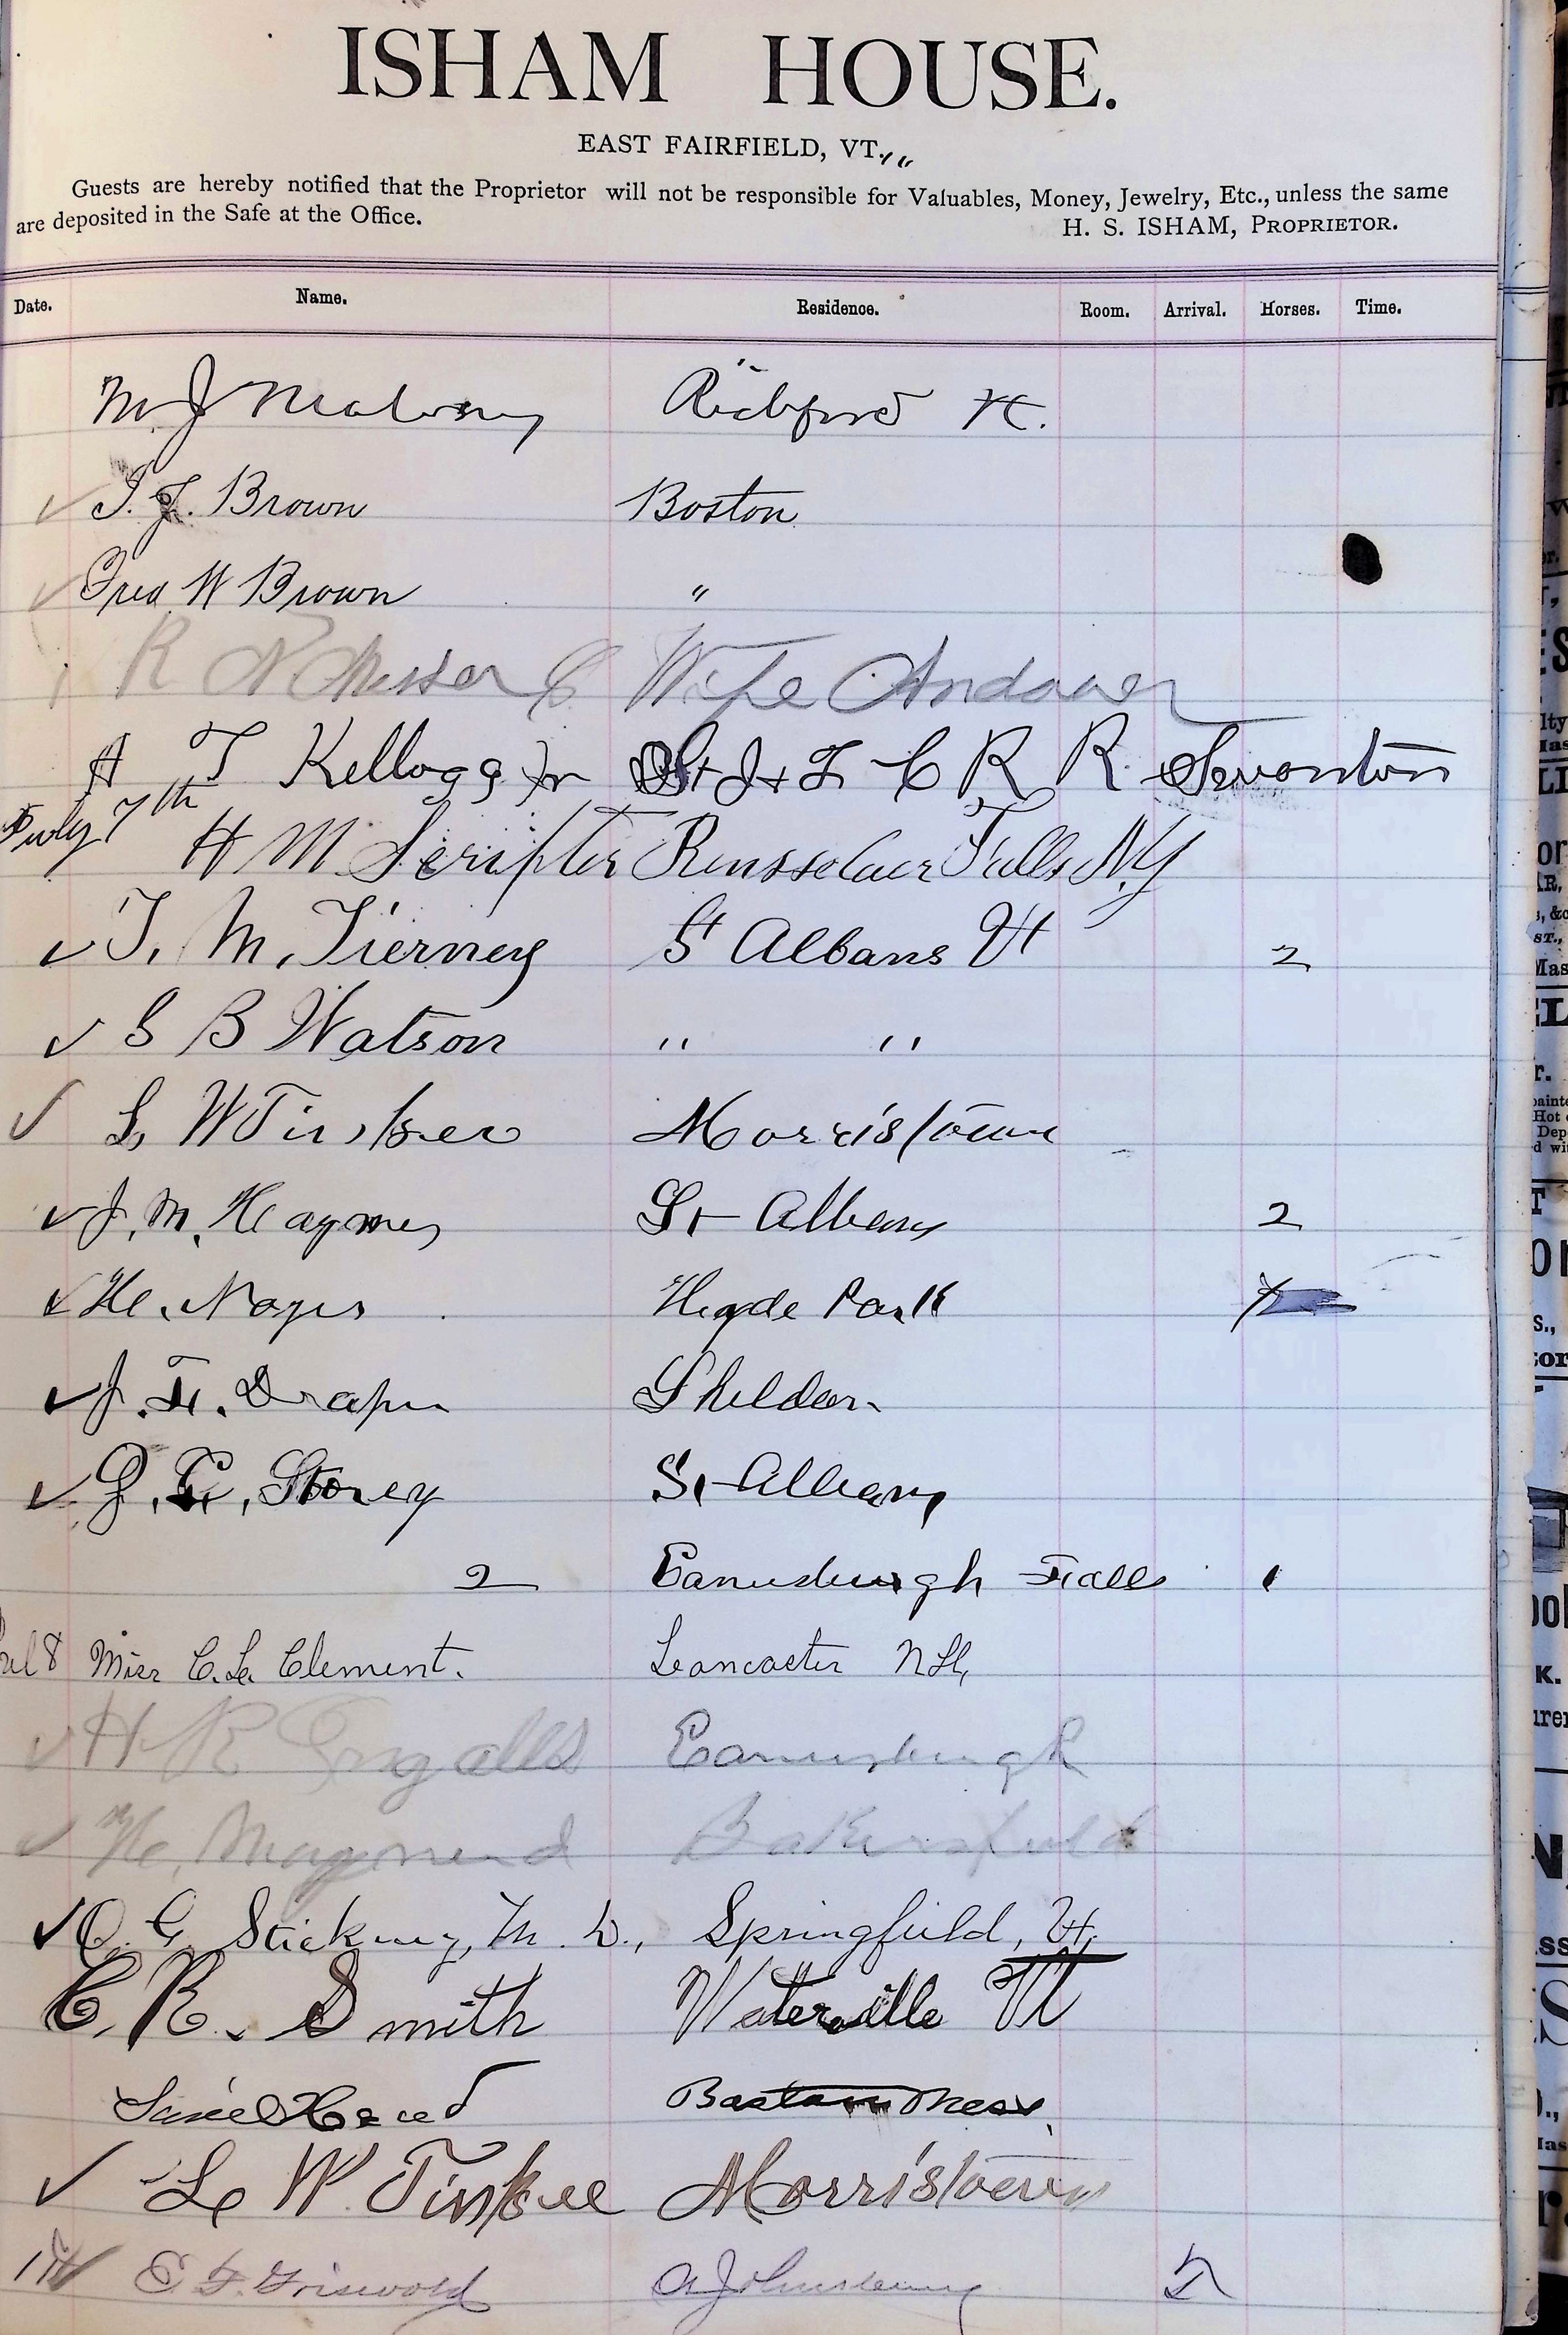 ISHAM HOUSE.
EAST FAIRFIELD, VT.
Guests are hereby notified that the Proprietor will not be responsible for Valuables, Money, Jewelry, Etc., unless the same
are deposited in the Safe at the Office. H. S. ISHAM, PROPRIETOR.
Date. Name. Residence. Room. Arrival. Horses. Time.
M. J. Maloney Richford Vt.
✓ T. J. Brown Boston
✓ Fred W Brown "
R N Messer & Wife Andover
A T Kellogg Jr St J & L C R R Swanton
July 7th
H M Scripter Rensselaer Falls N.Y
✓ T. M. Tierney St Albans Vt 2
✓ S B Watson " "
✓ L W Tinker Morristown
✓ J. M. Haynes St Albans 2
✓ H. Noyes Hyde Park
✓ J. F. Draper Sheldon
✓ Storey St Albans
2 Enosburgh Falls 1
8 Miss C. L. Clement. Lancaster N.H,
✓ H R Ingalls Enosburgh
✓ H. Maynard Bakersfield
✓ O. G. Stickney, M. D., Springfield, Vt,
C. R. Smith Waterville Vt
Boston Mass.
✓ L W. Tinker Morristown
E F. Griswold St Johnsbury